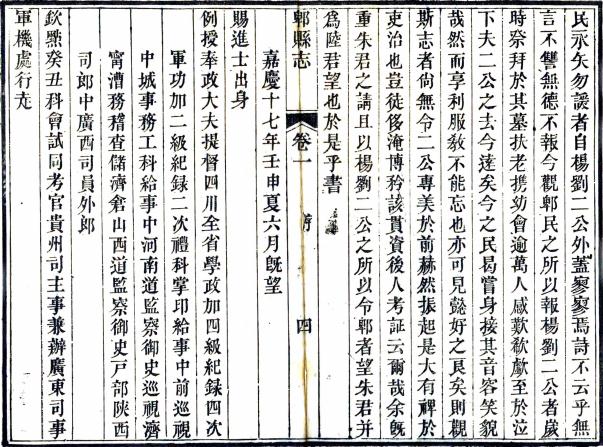 民永矢勿諼者自楊劉二公外蓋寥寥焉詩不云乎無
言不讐無德不報今觀郫民之所以報楊劉二公者歲
時祭拜於其墓扶老攜幼會逾萬人感歎欷歔至於泣
下夫二公之去今遠矣今之民曷嘗身接其音容笑貌
哉然而享利服教不能忘也亦可見懿好之良矣則觀
斯志者尚無令二公專美於前赫然振起是大有裨於
吏治也豈徒侈淹博矜該貫資後人考証云爾哉余旣
重朱君之請且以楊劉二公之所以令郫者望朱君并
爲陸君望也於是乎書
嘉慶十七年壬申夏六月旣望
郫縣志
卷一
序
四
賜進士出身
例授奉政大夫提督四川全省學政加四級紀錄四次
軍功加二級紀錄二次禮科掌印給事中前巡視
中城事務工科給事中河南道監察御史巡視濟
甯漕務稽查儲濟倉山西道監察御史戸部陝西
司郎中廣西司員外郎
欽㸃癸丑科會試同考官貴州司主事兼辦廣東司事
軍機處行走